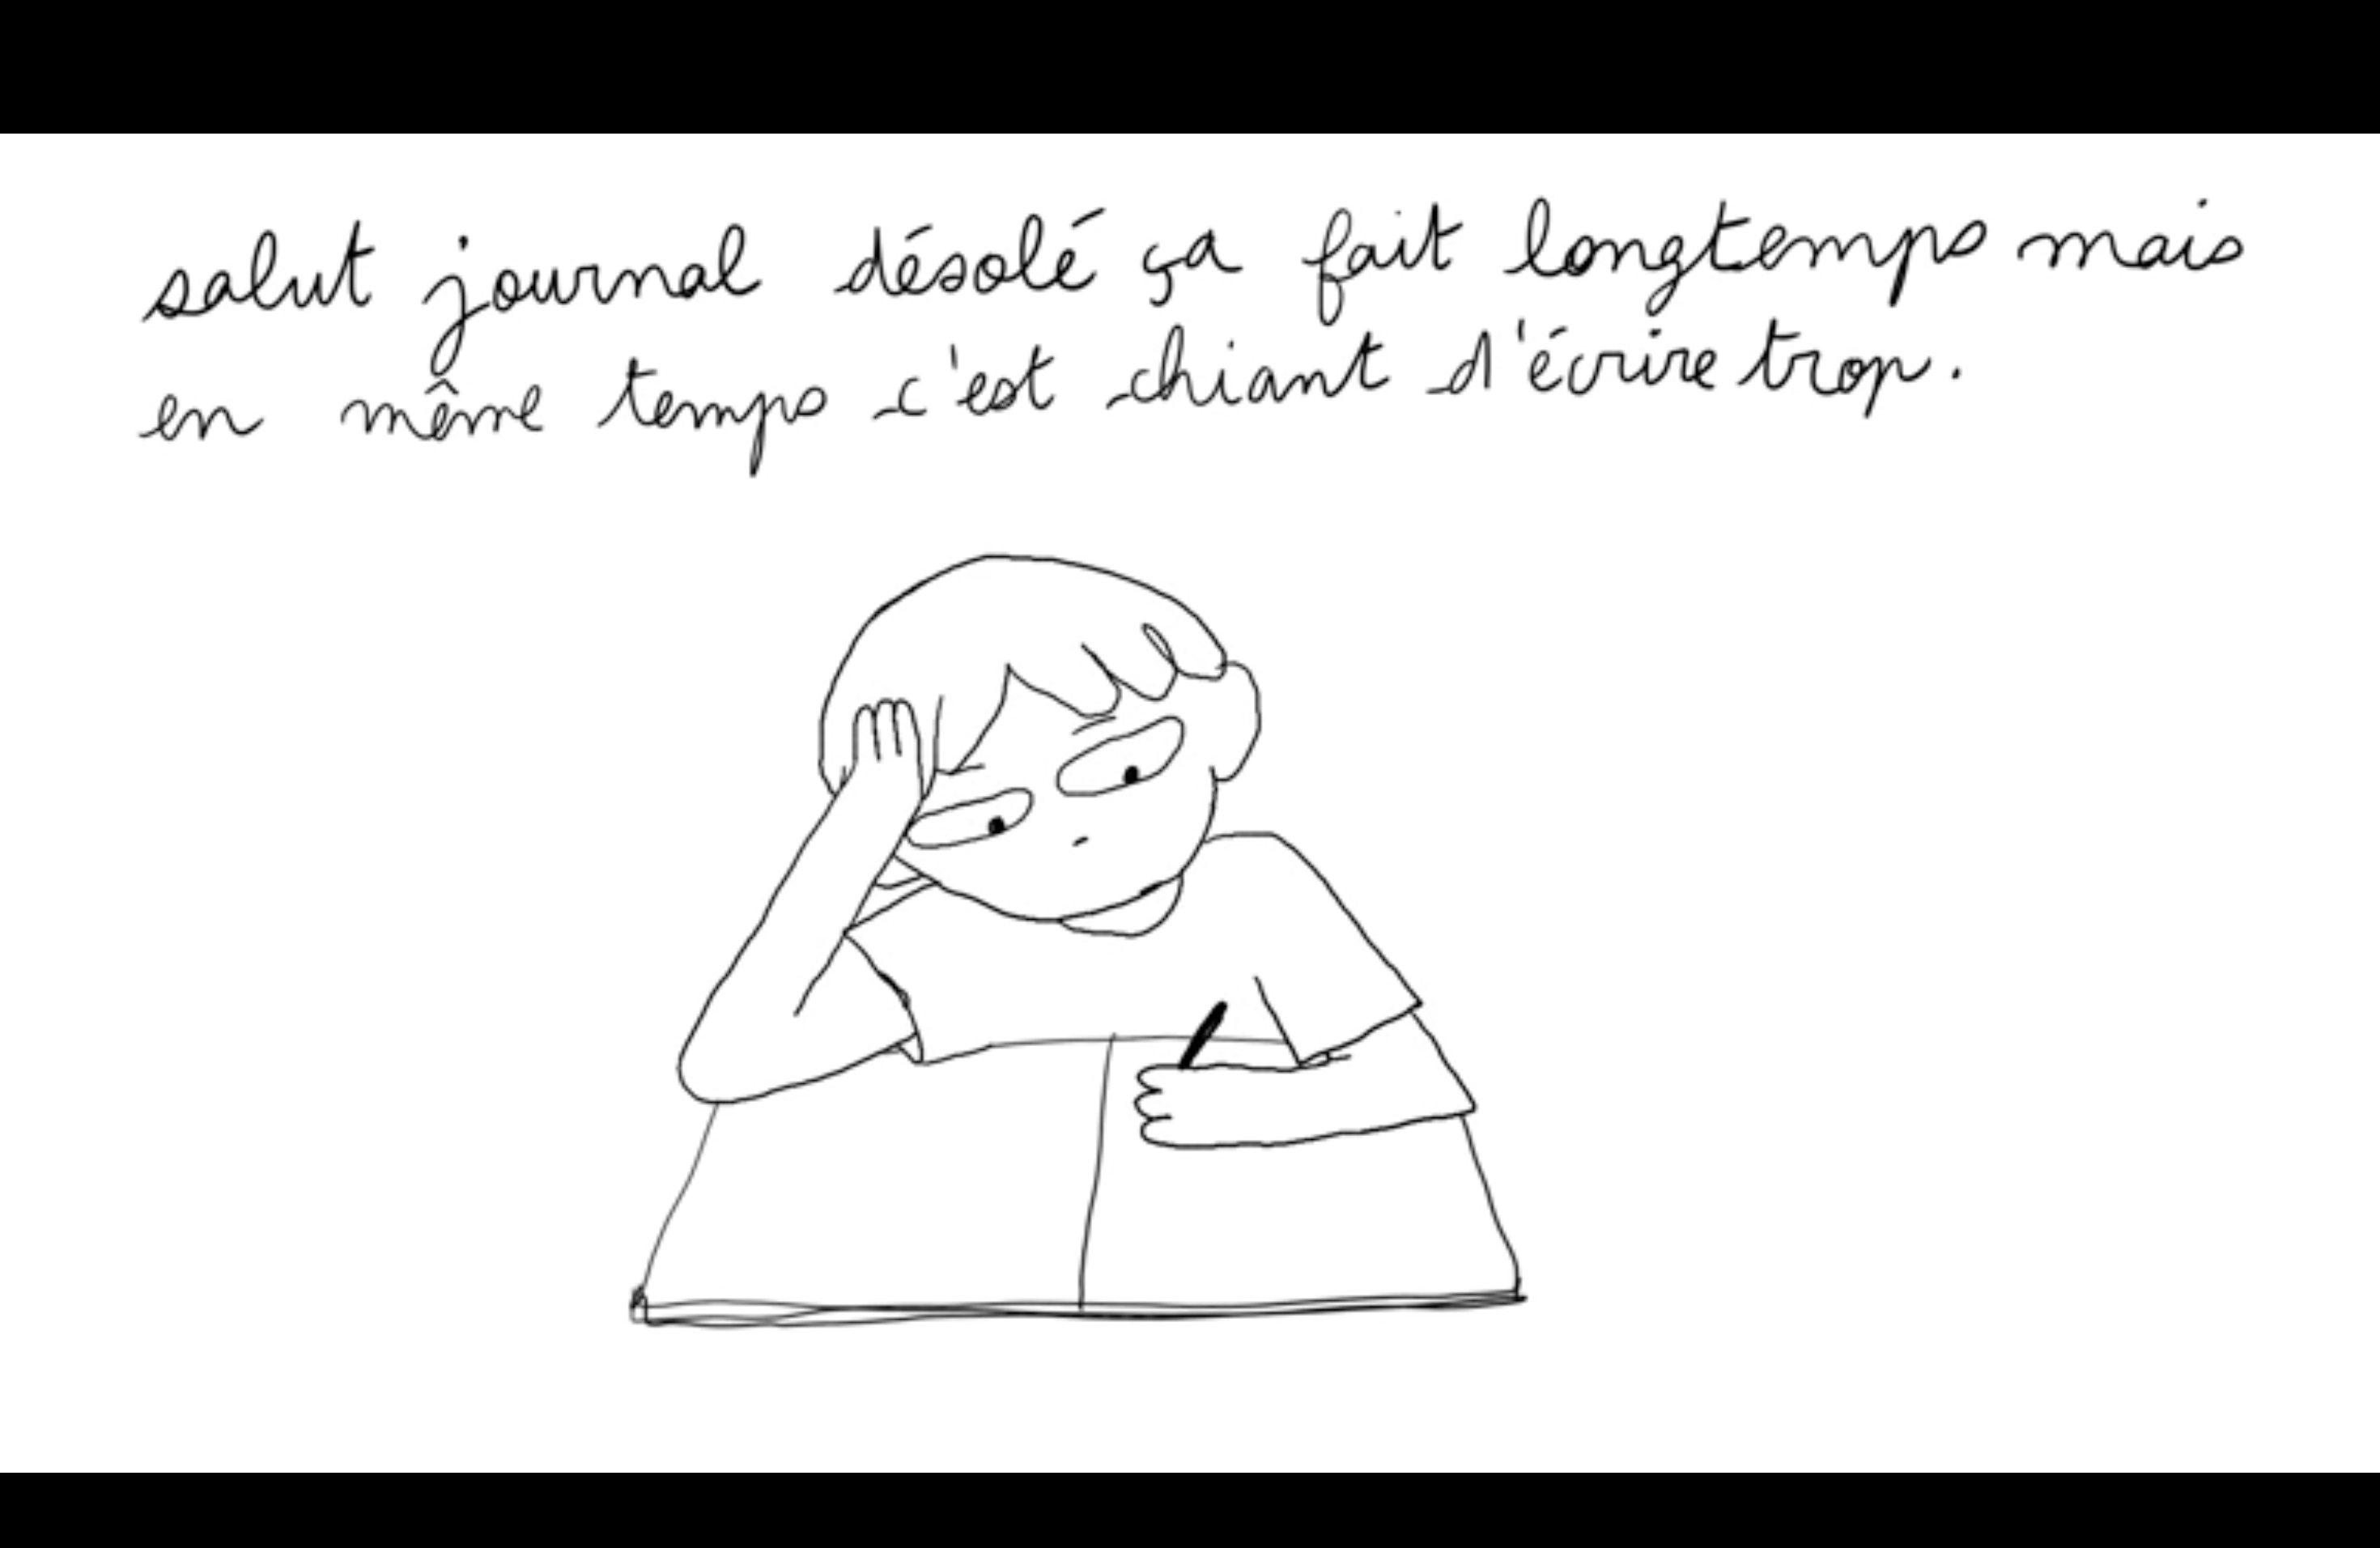 salut journal désolé ça fait longtemps mais
en même temps c'est chiant d'écrire trop.